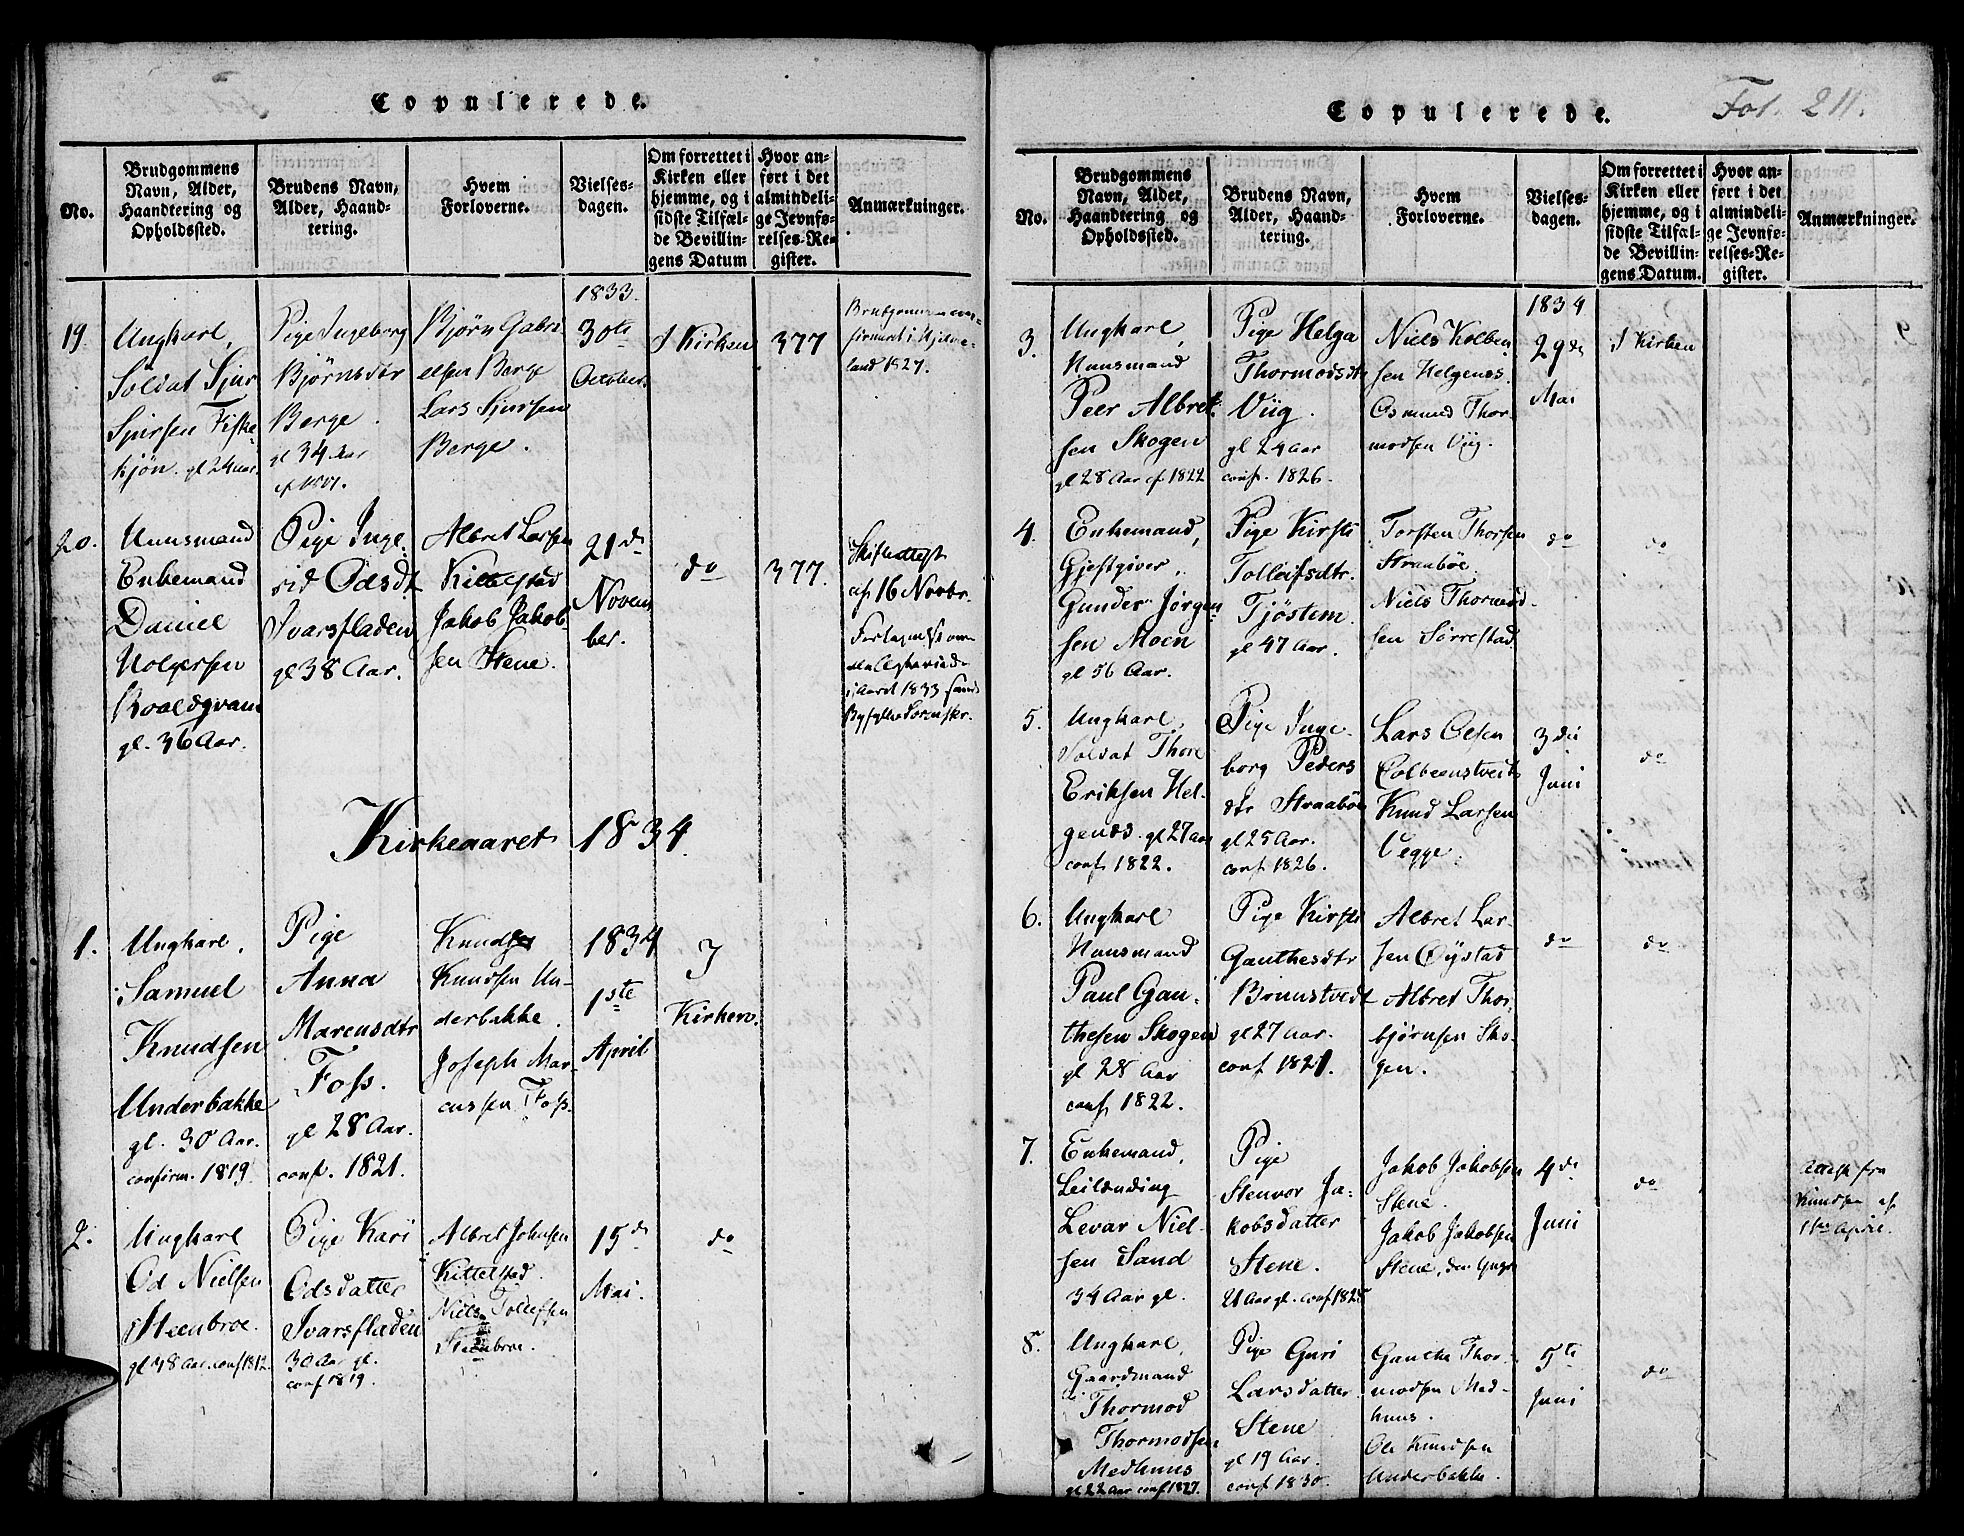 Copulerede.
No.
Brudgommens
Navn, Alder,
Haandtering og
Opholdssted.
Brudens Navn,
Alder, Haand-
tering.
Hvem
Forloverne.
Vielses-
dagen.
Om forrettet i
Kirken eller
hjemme, og i
sidste Tilfæl-
de Bevillin-
gens Datum
Hvor an-
ført i det
almindeli-
ge Jevnfø-
relses-Re-
gister.
Anmærkninger.
19.
Ungkarl,
Soldat Sjur
Sjursen Fiske-
kjøn. gl 24 aar.
Pige Ingeborg
Bjørnsdtr
Berge.
gl 34 Aar
Bjørn Gabri-
elsen Berge
Lars Sjursen
Berge.
1833.
30te
October.
I Kirken
377
Brudgommen con-
firmeret i Hjelme-
land 1827.
20.
Huusmand
Enkemand
Daniel
Holgersen
Roaldqvam
gl. 36 Aar.
Pige Inge-
rid Odsdt
Ivarsfladen
gl 38 Aar.
Albret Larsen
Kittelstad
Jakob Jakob-
sen Stene.
21de
Novem
ber.
do
377.
Skifteattest
af 16 Novbr.
i Aaret 1833
Kirkeaaret 1834.
1.
Ungkarl,
Samuel
Knudsen
Underbakke
gl. 30 Aar.
confirm. 1819.
Pige
Anna
Marcusdtr
Foss.
gl 28 Aar.
conf. 1821.
Knud
Knudsen Un-
derbakke.
Joseph Mar-
cussen Foss.
1834
1ste
April
I
Kirken.
2.
Ungkarl
Od Nielsen
Steenbroe.
gl 38 Aar. conf 1812.
Pige Kari
Odsdatter
Ivarsfladen
30 Aar gl.
conf 1819.
Albret Johnsen
Kittelstad.
Niels Tollefsen
Steenbroe.
15de
Mai.
do
Copulerede.
Fol. 211.
No.
Brudgommens
Navn, Alder,
Haandtering og
Opholdssted.
Brudens Navn,
Alder, Haand-
tering.
Hvem
Forloverne.
Vielses-
dagen.
Om forrettet i
Kirken eller
hjemme, og i
sidste Tilfæl-
de Bevillin-
gens Datum.
Hvor an-
ført i det
almindeli-
ge Jevnfø-
relses-Re-
gister.
Anmærkninger.
3.
Ungkarl,
Huusmand
Peer Albret-
sen Skogen
gl 28 Aar cf. 1822
Pige Helga
Thormodsdtr
Viig.
gl 24 aar
conf. 1826.
Niels Kolben
sen Helgenes.
Osmund Thor-
modsen Viig.
1834
29de
Mai
I Kirken
4.
Enkemand,
Gjestgiver
Gunder Jørgen-
sen Moen
gl 56 Aar.
Pige Kirsti
Tolleifsdtr.
Tjøstem.
gl 47 Aar.
Torsten Thorsen
Straabøe.
Niels Thormod-
sen Sørrestad
do
do
5.
Ungkarl,
Soldat Thore
Eriksen Hel-
genes. gl 27 aar
conf 1822.
Pige Inge-
borg Peders
dtr Straabøe
gl 25 Aar.
conf 1826.
Lars Olsen
Colbeenstveit
Knud Larsen
Vegge.
3die
Juni
do
6.
Ungkarl
Huusmand
Paul Gau-
thesen Skogen
gl 28 Aar
conf 1822.
Pige Kirsti
Gauthesdtr
Bruustvedt
gl 27 aar.
conf 1821.
Albret Lar-
sen Øystad
Albret Thor-
bjørnsen Sko-
gen.
do
do
7.
Enkemand,
Leilænding
Levar Niel-
sen Sand
34 Aar gl.
Pige
Stenvor Ja-
kobsdatter
Stene.
21 Aar gl. conf 1828
Jakob Jakobsen
Stene.
Jakob Jakobsen
Stene, den Yngre
4de
Juni
do
Attest fra
Knudsen af
1ste April.
8.
Ungkarl,
Gaardmand
Thormod
Thormodsen
Medhuus
gl 22 Aar conf 1827.
Pige Guri
Larsdatter
Stene
gl 19 Aar.
conf 1830.
Gauthe Thor-
modsen Med-
huus.
Ole Knudsen
Underbakke.
5te
Juni
do